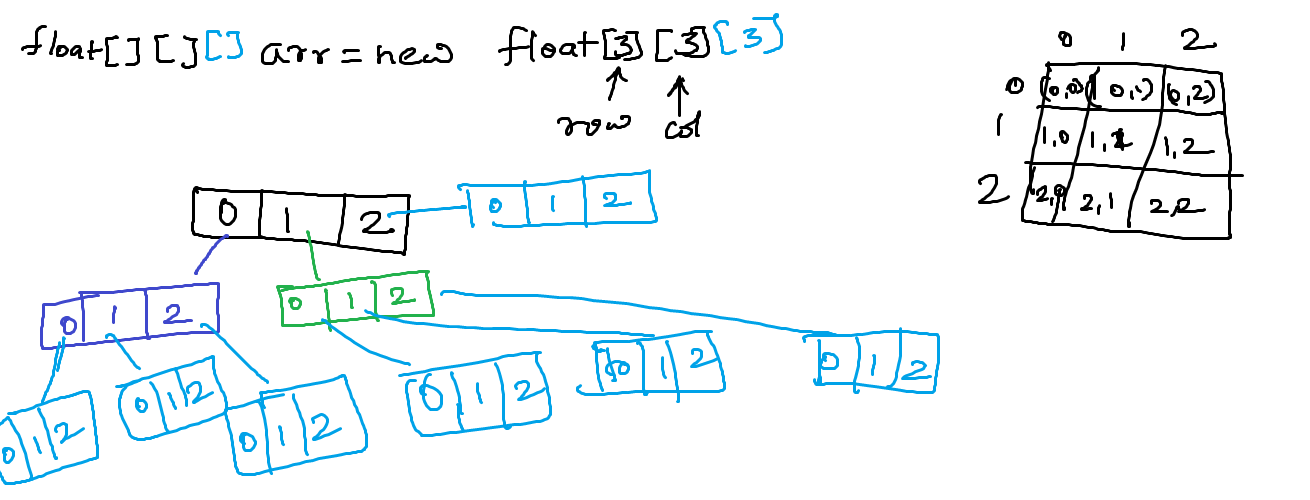 float[][][] arr = new float[3][3][3]
row col
0 1 2
0 (0,0) (0,1) (0,2)
1 1,0 1,1 1,2
2 2,0 2,1 2,2
0 1 2 0 1 2
0 1 2 0 1 2
0 1 2 0 1 2 0 1 2 0 1 2 0 1 2 0 1 2